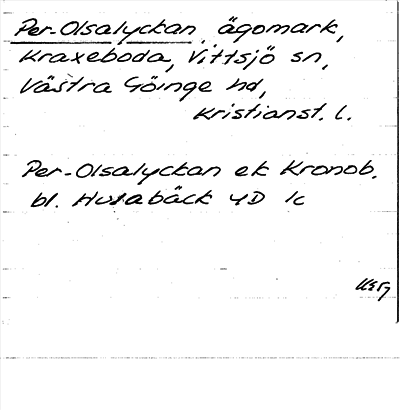 Per-Olsalyckan, ägomark,
Kraxeboda, Vittsjö sn,
Västra Göinge hd,
Kristianst. l.
Per-Olsalyckan ek Kronob.
bl. Husabäck 4D 1c